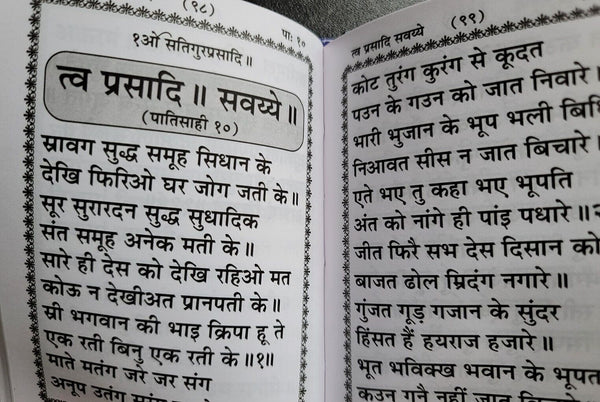 (९८)
पा: १०
१ओं सतिगुरप्रसादि॥
त्व प्रसादि॥ सवय्ये॥
(पातिसाही १०)
स्रावग सुद्ध समूह सिधान के
देखि फिरिओ घर जोग जती के॥
सूर सुरारदन सुद्ध सुधादिक
संत समूह अनेक मती के॥
सारे ही देस को देखि रहिओ मत
कोऊ न देखीअत प्रानपती के॥
स्री भगवान की भाइ क्रिपा हू ते
एक रती बिनु एक रती के॥१॥
माते मतंग जरे जर संग
अनूप उतंग
त्व प्रसादि सवय्ये
(९९)
कोट तुरंग कुरंग से कूदत
पउन के गउन को जात निवारे॥
भारी भुजान के भूप भली बिधि
निआवत सीस न जात बिचारे॥
एते भए तु कहा भए भूपति
अंत को नांगे ही पांइ पधारे॥
जीत फिरै सभ देस दिसान को
बाजत ढोल म्रिदंग नगारे॥
गुंजत गूड़ गजान के सुंदर
हिंसत हैं हयराज हजारे॥
भूत भविक्ख भवान के भूपत
कउन गनै नहीं जात